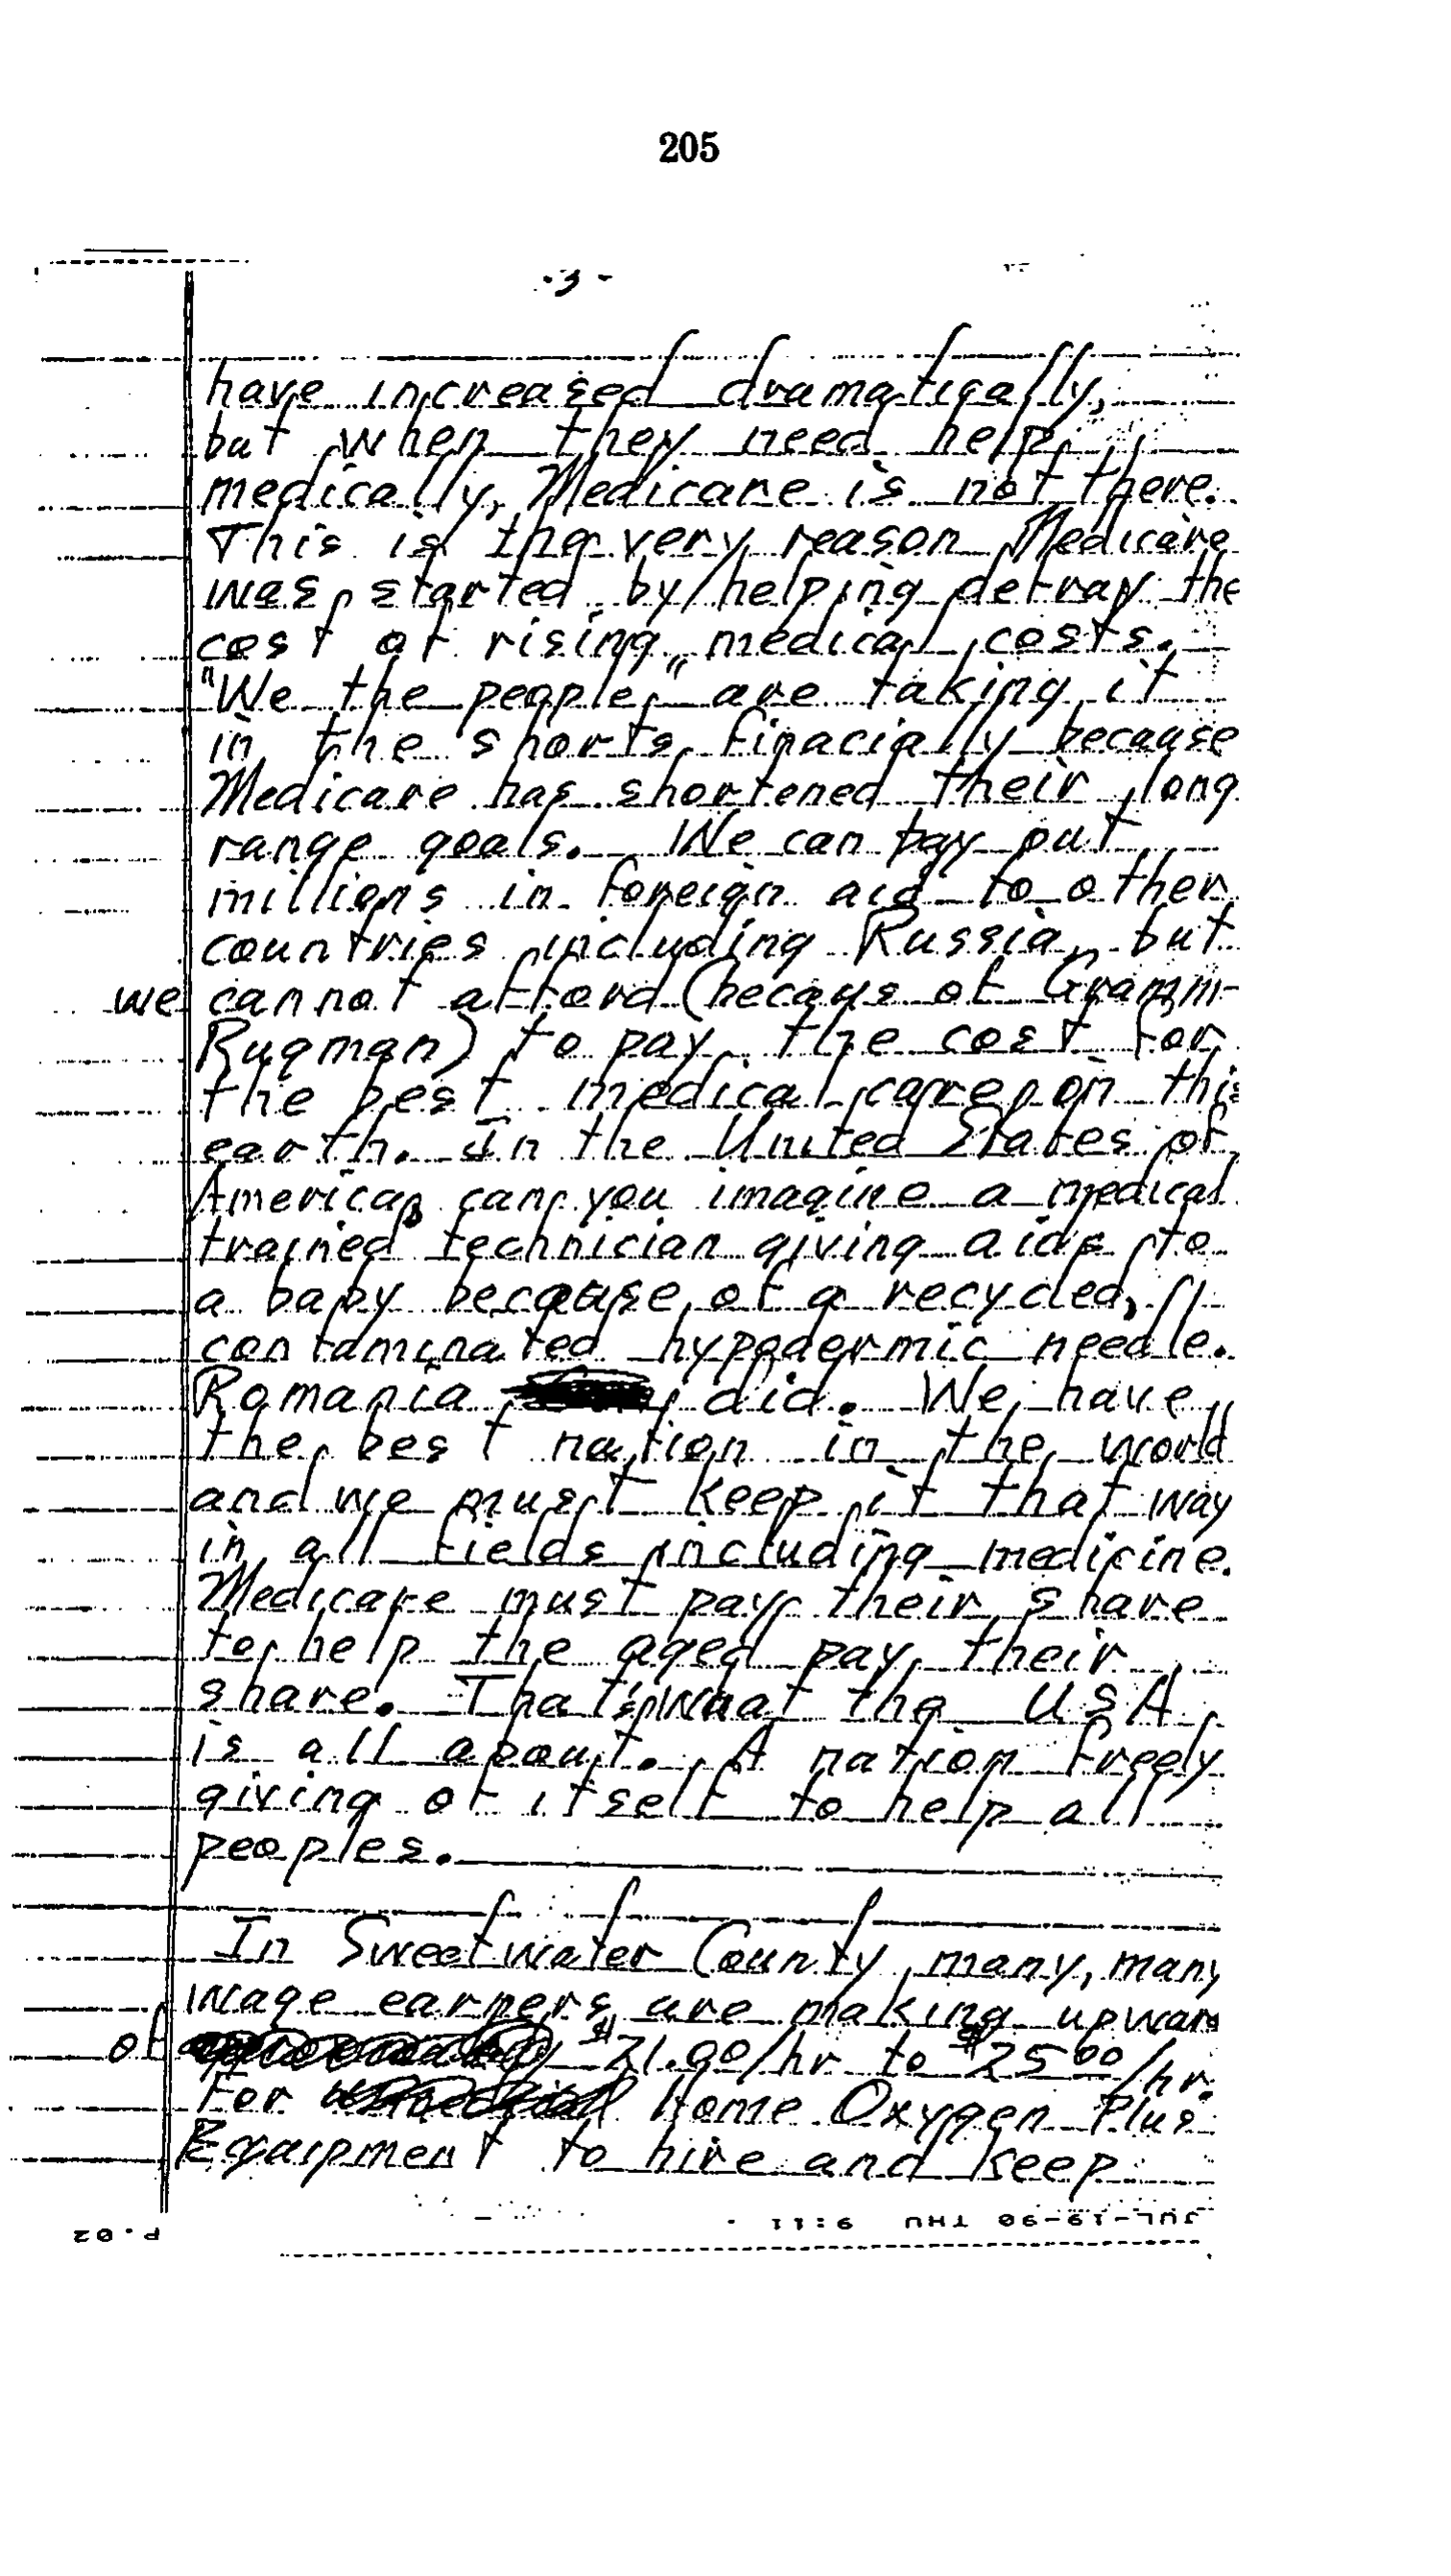 205
-3-
have increased dramatically,
but when they need help
medically, Medicare is not there.
This is the very reason Medicare
was started by helping defray the
cost of rising medical costs.
"We the people," are taking it
in the shorts finacially because
Medicare has shortened their long
range goals. We can pay out
millions in foreign aid to other
countries including Russia, but
we cannot afford (becaus of Gramm-
Rugman) to pay the cost for
the best medical care on this
earth. In the United States of
America, can you imagine a medical
trained technician giving aids to
a baby because of a recycled,
contaminated hypodermic needle.
Romania did. We have
the best nation in the world
and we must keep it that way
in all fields including medicine.
Medicare must pay their share
to help the aged pay their
share. That's what the USA
is all about. A nation freely
giving of itself to help all
peoples.
In Sweetwater County many, many
wage earners are making upward
of $21.00/hr to $25.00/hr.
For Home Oxygen Plus
Equipment to hire and keep
JUL-19-90 THU 9:11 P.02